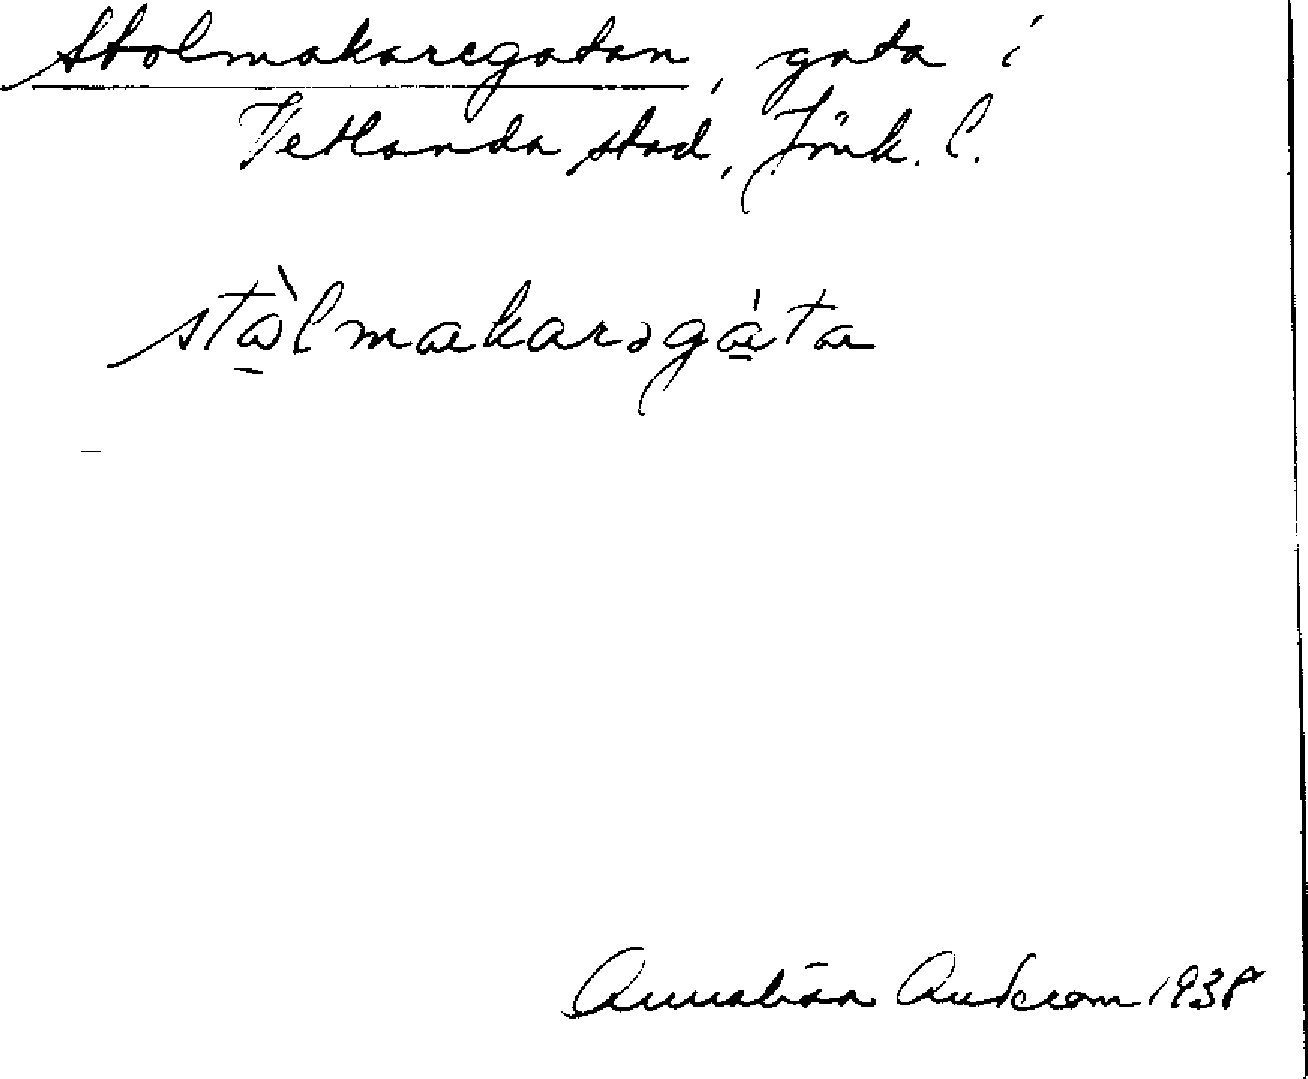 Stolmakaregatan, gata i
Vetlanda stad, Jönk. l.
stòlmakarəgáta
Annalisa Anderson 1938